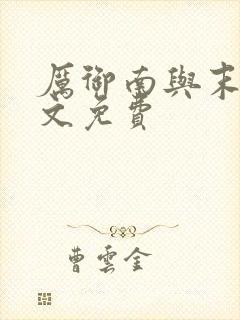 厲御南與末
文免費
曹雲金